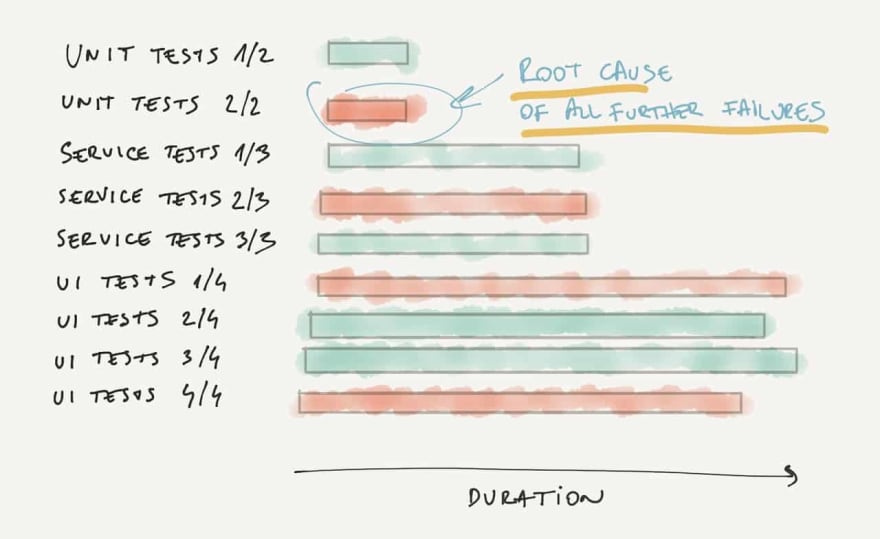 UNIT TESTS 1/2
ROOT CAUSE
UNIT TESTS 2/2
OF ALL FURTHER FAILURES
SERVICE TESTS 1/3
SERVICE TESTS 2/3
SERVICE TESTS 3/3
UI TESTS 1/4
UI TESTS 2/4
UI TESTS 3/4
UI TESTS 4/4
DURATION